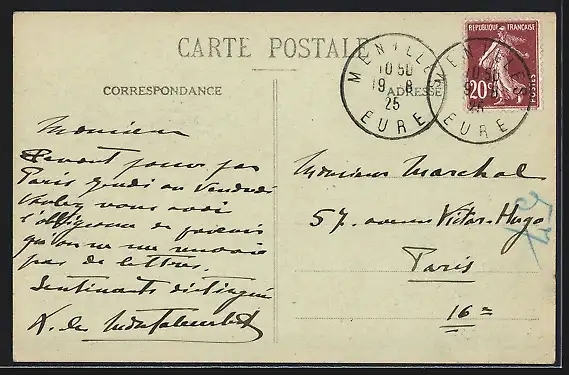 CARTE POSTALE
CORRESPONDANCE
ADRESSE
MENILLES
10 50
19 8
25
EURE
MENILLES
10 50
25
EURE
REPUBLIQUE FRANÇAISE
20c
POSTES
Monsieur
Devant passer par
Paris Jeudi ou Vendredi
Voulez vous avoir
l'obligeance de
qu'on ne me renvoie
pas de lettres.
Sentiments distingués
Monsieur Marchal
57. avenue Victor-Hugo
Paris
16e
57